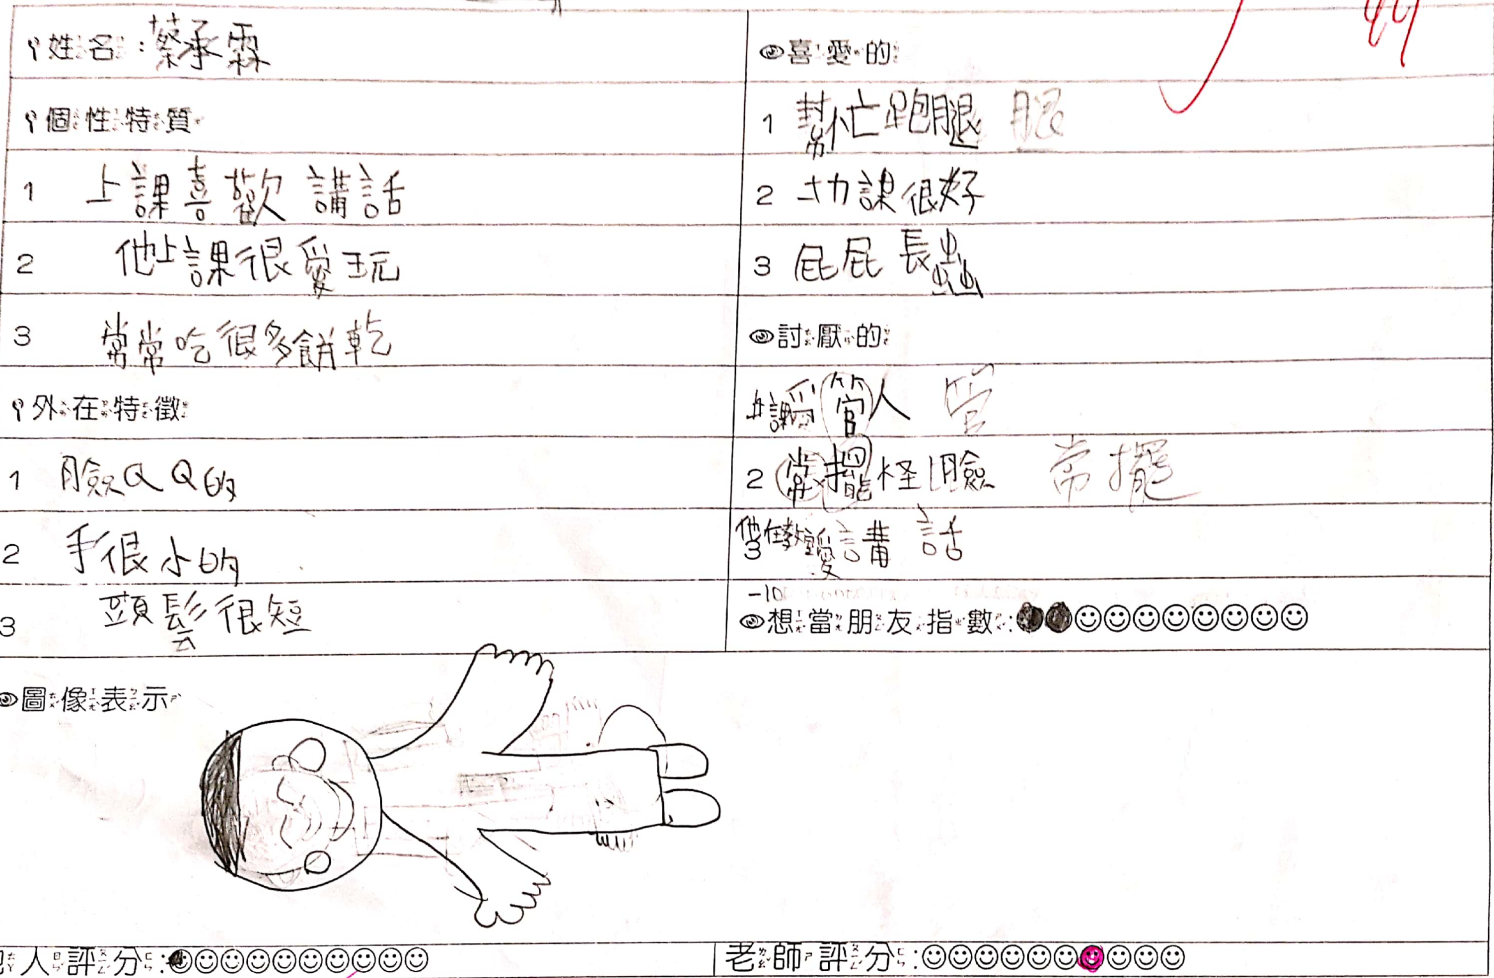 姓名：蔡承霖
個性特質
1 上課喜歡講話
2 他上課很愛玩
3 常常吃很多餅乾
外在特徵
1 臉QQ的
2 手很小的
3 頭髮很短
喜愛的
1 幫忙跑腿 腿
2 功課很好
3 屁屁長蟲
討厭的
上課愛管人 管
2 常擺怪臉 常擺
3 他在教室愛講話
-10
想當朋友指數：
圖像表示
人評分：
老師評分：